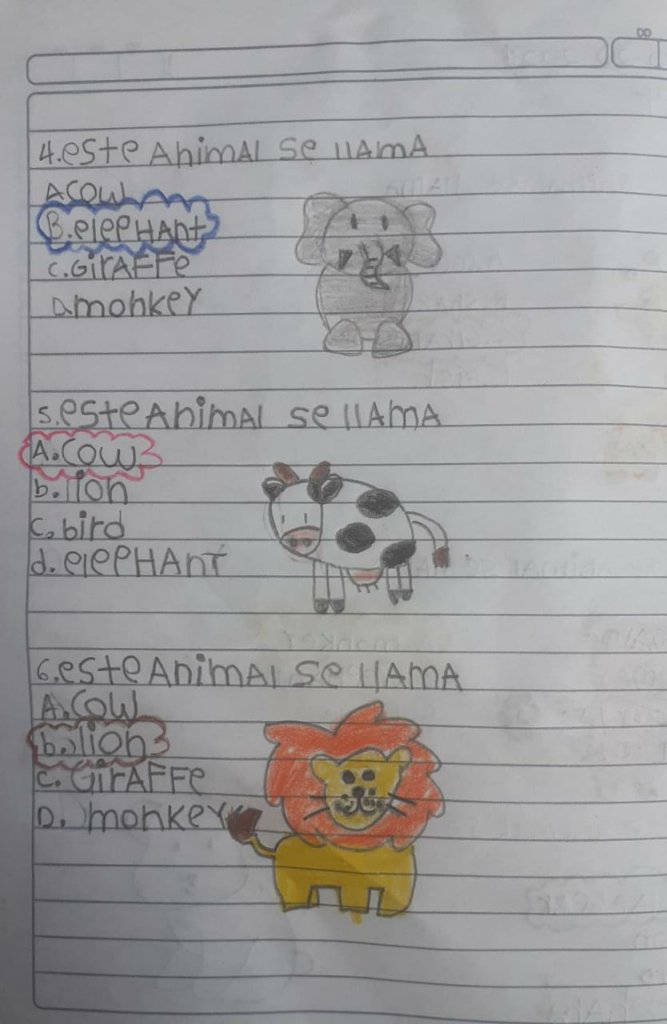 4.este Animal se llama
A cow
B.elepHAnt
C.GirAFFe
D.monkey
5.este Animal se llama
A.cow
b.lion
C.bird
d.elepHAnt
6.este Animal se llama
A.cow
b.lion
C.GirAFFe
D.monkey